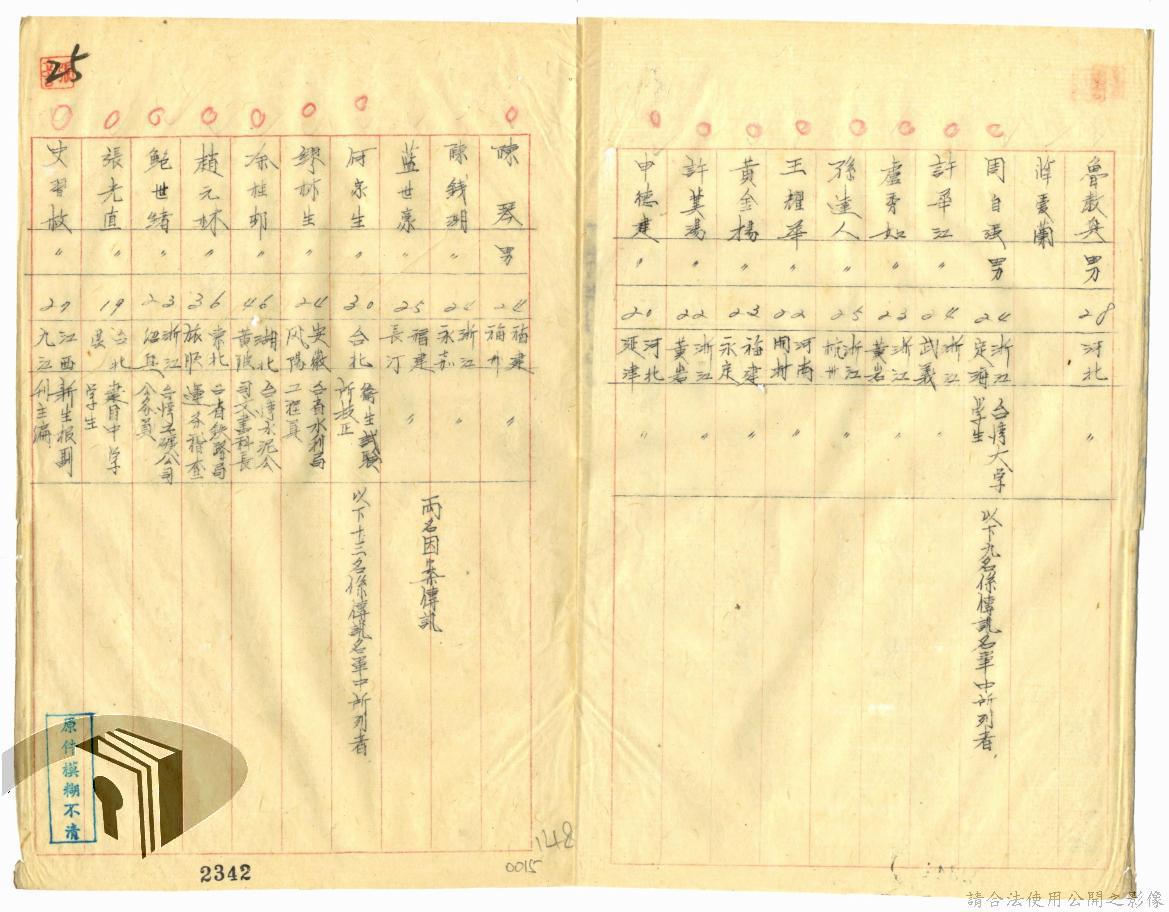 魯教興 男 28 河北 〃
蔣愛蘭
周自強 男 24 浙江定海 台湾大学学生 以下九名係傳訊名單中所列者
許華江 〃 24 浙江武義 〃
盧秀如 〃 23 浙江黃岩 〃
孫達人 〃 25 浙江杭州 〃
王耀華 〃 22 河南開封 〃
黃金揚 〃 23 福建永定 〃
許冀湯 〃 22 浙江黃岩 〃
申德建 〃 20 河北延津 〃
陳琴 男 24 福建福州 〃
陳錢潮 〃 24 浙江永嘉 〃
藍世豪 〃 25 福建長汀 〃 兩名因案傳訊
何京生 〃 30 台北 衛生試驗所技正 以下十三名係傳訊名單中所列者
繆彬生 〃 24 安徽鳳陽 台省水利局工程員
涂桂邨 〃 46 湖北黃陂 台湾水泥公司文書科長
趙元林 〃 36 東北旅順 台省鉄路局運务稽查
鮑世緒 〃 23 浙江紹興 台湾工礦公司公务員
張光直 〃 19 台北 建国中学学生
史習枚 〃 27 江西九江 新生报副刊主編
25
原件模糊不清
2342
0015
148
請合法使用公開之影像